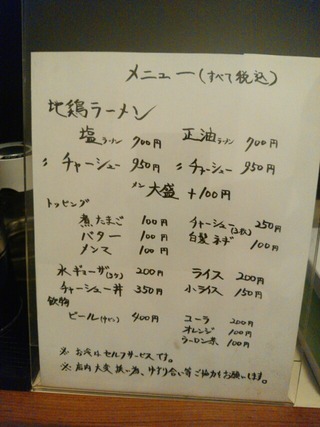 メニュー(すべて税込)
地鶏ラーメン
塩ラーメン 700円 正油ラーメン 700円
〃チャーシュー 950円 〃チャーシュー 950円
メン大盛 +100円
トッピング
煮たまご 100円 チャーシュー(3枚) 250円
バター 100円 白髪ネギ 100円
メンマ 100円
水ギョーザ(3ケ) 200円 ライス 200円
チャーシュー丼 350円 小ライス 150円
飲物
ビール 400円 コーラ 200円
オレンジ 100円
ウーロン茶 100円
※お水はセルフサービスです。
※店内大変狭い為、ゆずり合い等ご協力をお願いします。